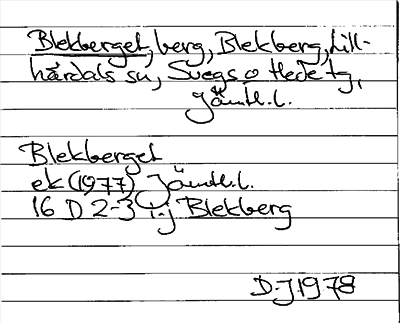 Blekberget, berg, Blekberg, Lill-
härdals sn, Svegs o Hede tg,
Jämtl. l.
Blekberget
ek (1977) Jämtl. l.
16 D 2-3 i-j Blekberg
D-J 1978